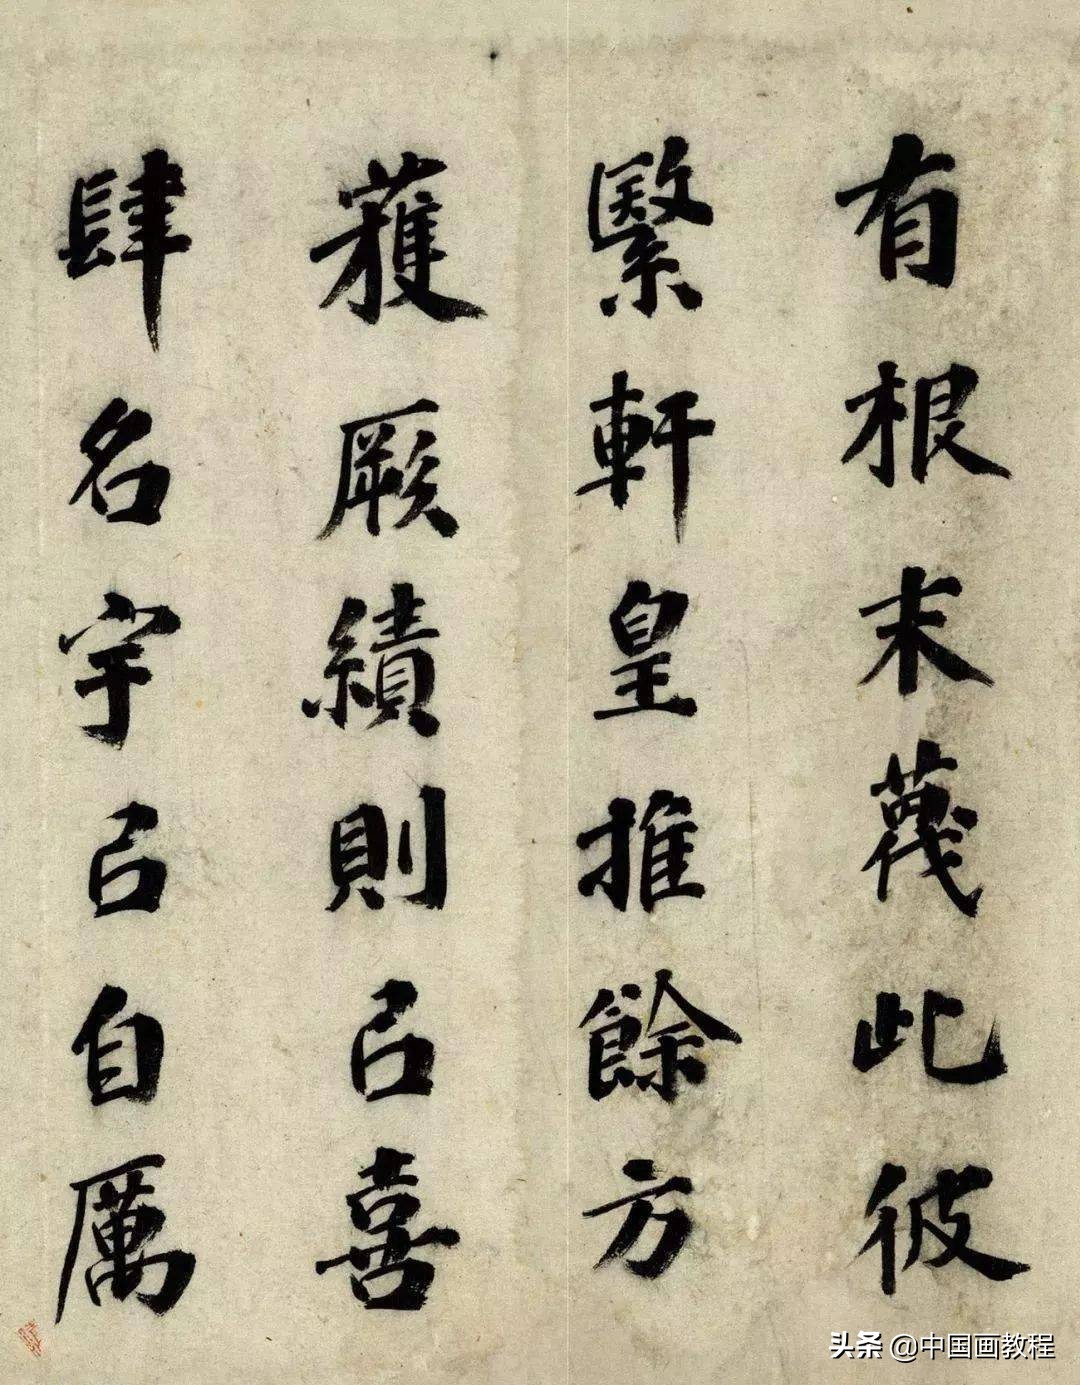 有根末蔑此彼
繄軒皇推餘方
獲厥績則㠯喜
肆名宇㠯自厲
头条 @中国画教程